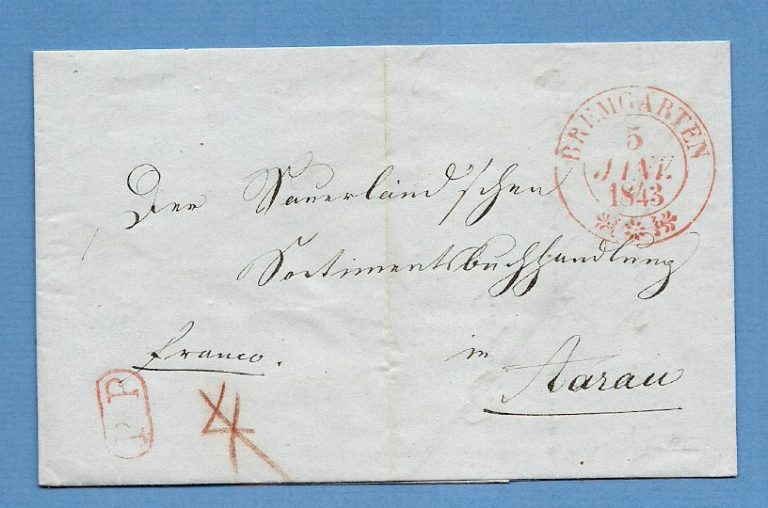 BREMGARTEN
5
JANV.
1843
Der Sauerländ'schen
Sortimentsbuchhandlung
franco.
in
Aarau
P.P.
4